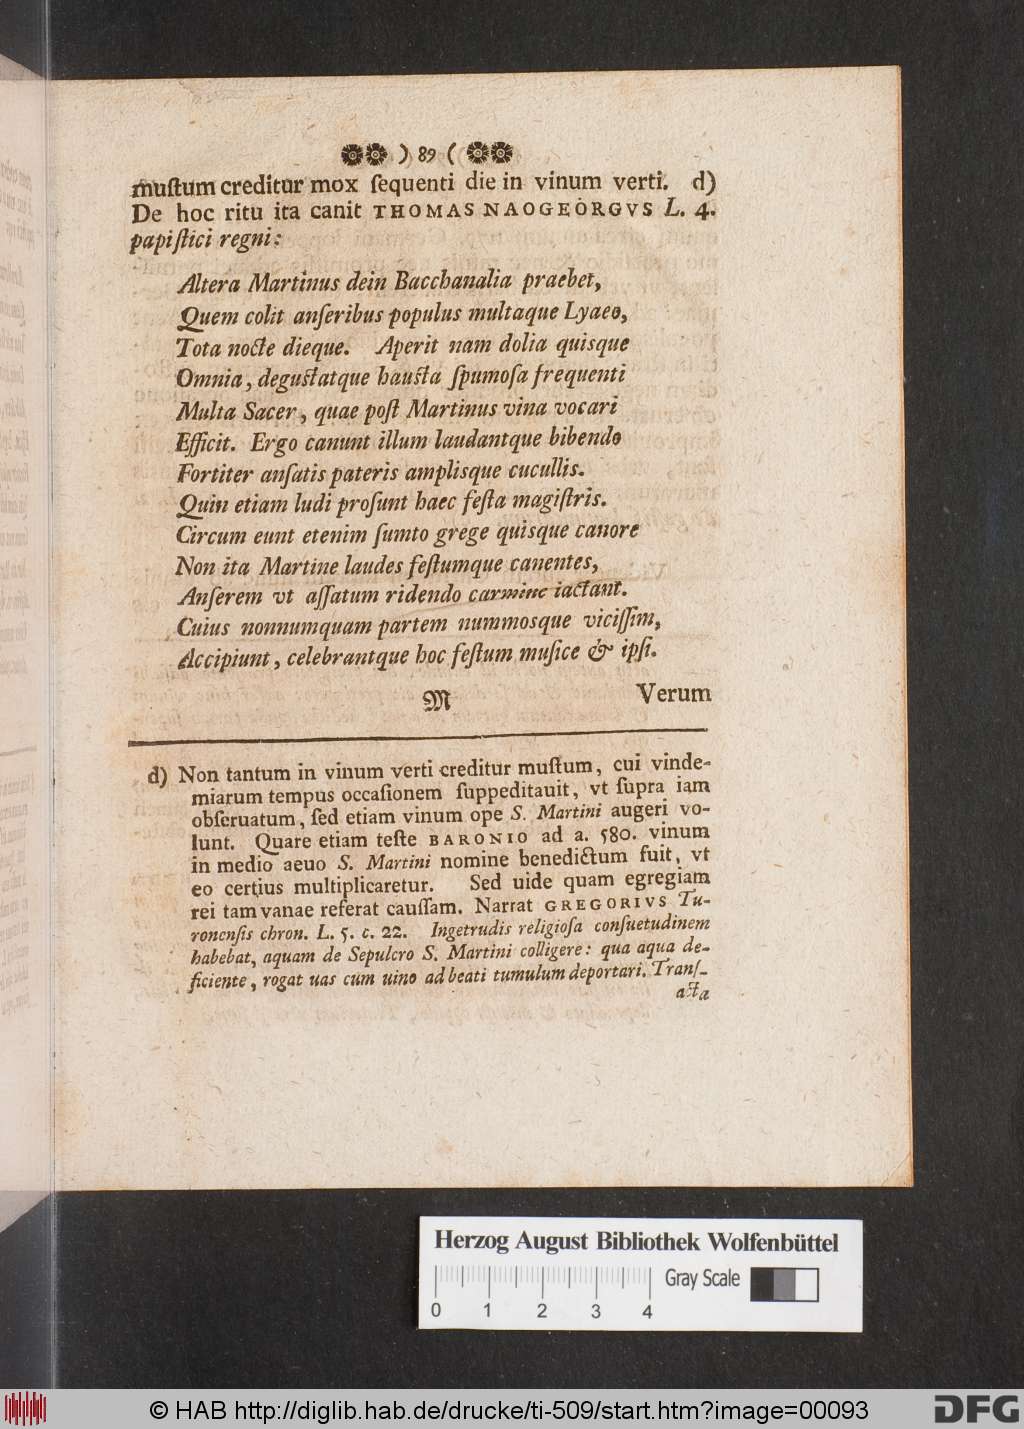 ) 89 (
muſtum creditur mox ſequenti die in vinum verti. d)
De hoc ritu ita canit THOMAS NAOGEORGVS L. 4.
papiſtici regni:
Altera Martinus dein Bacchanalia praebet,
Quem colit anſeribus populus multaque Lyaeo,
Tota nocte dieque. Aperit nam dolia quisque
Omnia, deguſtatque hauſta ſpumoſa frequenti
Multa Sacer, quae poſt Martinus vina vocari
Efficit. Ergo canunt illum laudantque bibendo
Fortiter anſatis pateris amplisque cucullis.
Quin etiam ludi proſunt haec feſta magiſtris.
Circum eunt etenim ſumto grege quisque canore
Non ita Martine laudes feſtumque canentes,
Anſerem vt aſſatum ridendo carmine iactant.
Cuius nonnumquam partem nummosque viciſſim,
Accipiunt, celebrantque hoc feſtum muſice & ipſi.
M Verum
d) Non tantum in vinum verti creditur muſtum, cui vinde-
miarum tempus occaſionem ſuppeditauit, vt ſupra iam
obſeruatum, ſed etiam vinum ope S. Martini augeri vo-
lunt. Quare etiam teſte BARONIO ad a. 580. vinum
in medio aeuo S. Martini nomine benedictum fuit, vt
eo certius multiplicaretur. Sed uide quam egregiam
rei tam vanae referat cauſſam. Narrat GREGORIVS Tu-
ronenſis chron. L. 5. c. 22. Ingetrudis religioſa conſuetudinem
habebat, aquam de Sepulcro S. Martini colligere: qua aqua de-
ficiente, rogat uas cum uino ad beati tumulum deportari. Tranſ-
acta
Herzog August Bibliothek Wolfenbüttel
Gray Scale
0 1 2 3 4
© HAB http://diglib.hab.de/drucke/ti-509/start.htm?image=00093
DFG